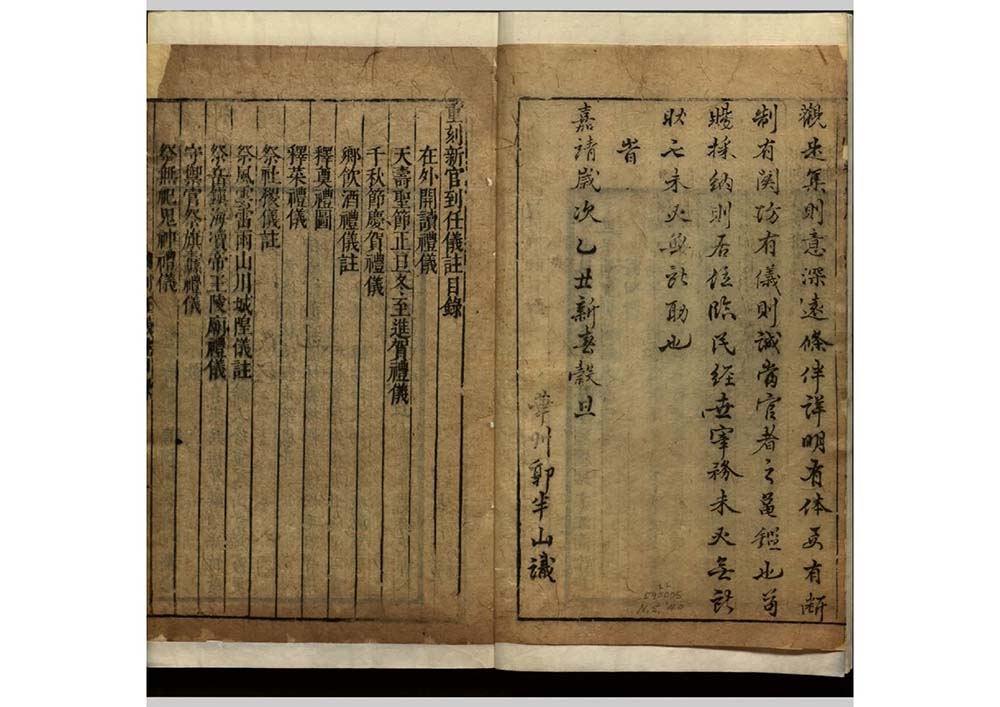 觀是集則意深遠條件詳明有体要有斷
制有関防有儀則誠當官者之龜鑑也苟
賜採納則居位臨民經世宰務未必無訴
助也
嘉靖歲次乙丑新春穀旦
華州郭半山識
重刻新官到任儀註目錄
在外開讀禮儀
天壽聖節正旦冬至進賀禮儀
千秋節慶賀禮儀
鄉飲酒禮儀註
釋奠禮圖
釋菜禮儀
祭社稷儀註
祭風雲雷雨山川城隍儀註
祭岳鎮海瀆帝王陵廟禮儀
守禦官祭旗纛禮儀
祭無祀鬼神禮儀